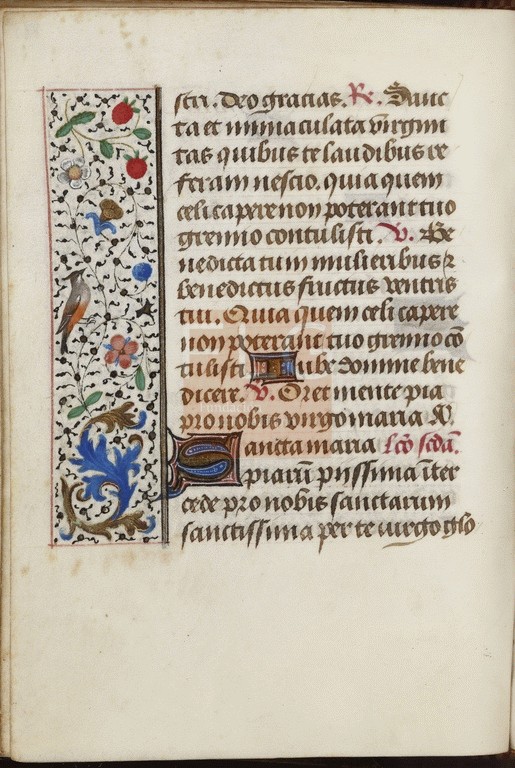 stri. Deo gracias. R. Sanc
ta et inmaculata virgini
tas quibus te laudibus re
feram nescio. quia quem
celi capere non poterant tuo
gremio contulisti. V. Be
nedicta tu in mulieribus ⁊
benedictus fructus ventris
tui. Quia quem celi capere
non poterant tuo gremio cō
tulisti Iube domine bene
dicere. V. Oret mente pia
pro nobis virgo maria
Sancta maria lcō scdā.
piarū piissima īter
cede pro nobis sanctarum
sanctissima per te virgo glo